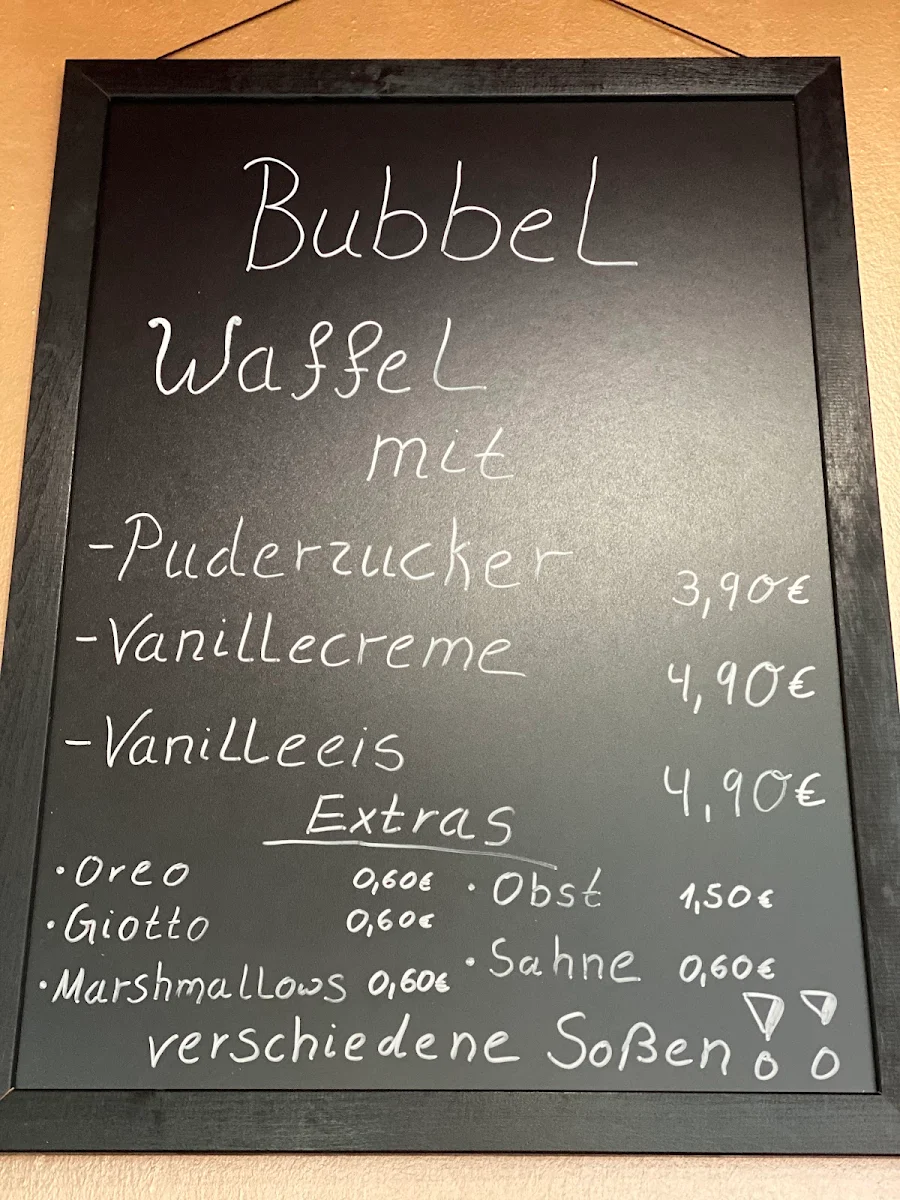 Bubbel
Waffel
mit
-Puderzucker 3,90€
-Vanillecreme 4,90€
-Vanilleeis 4,90€
Extras
·Oreo 0,60€ ·Obst 1,50€
·Giotto 0,60€
·Marshmallows 0,60€ ·Sahne 0,60€
verschiedene Soßen!!